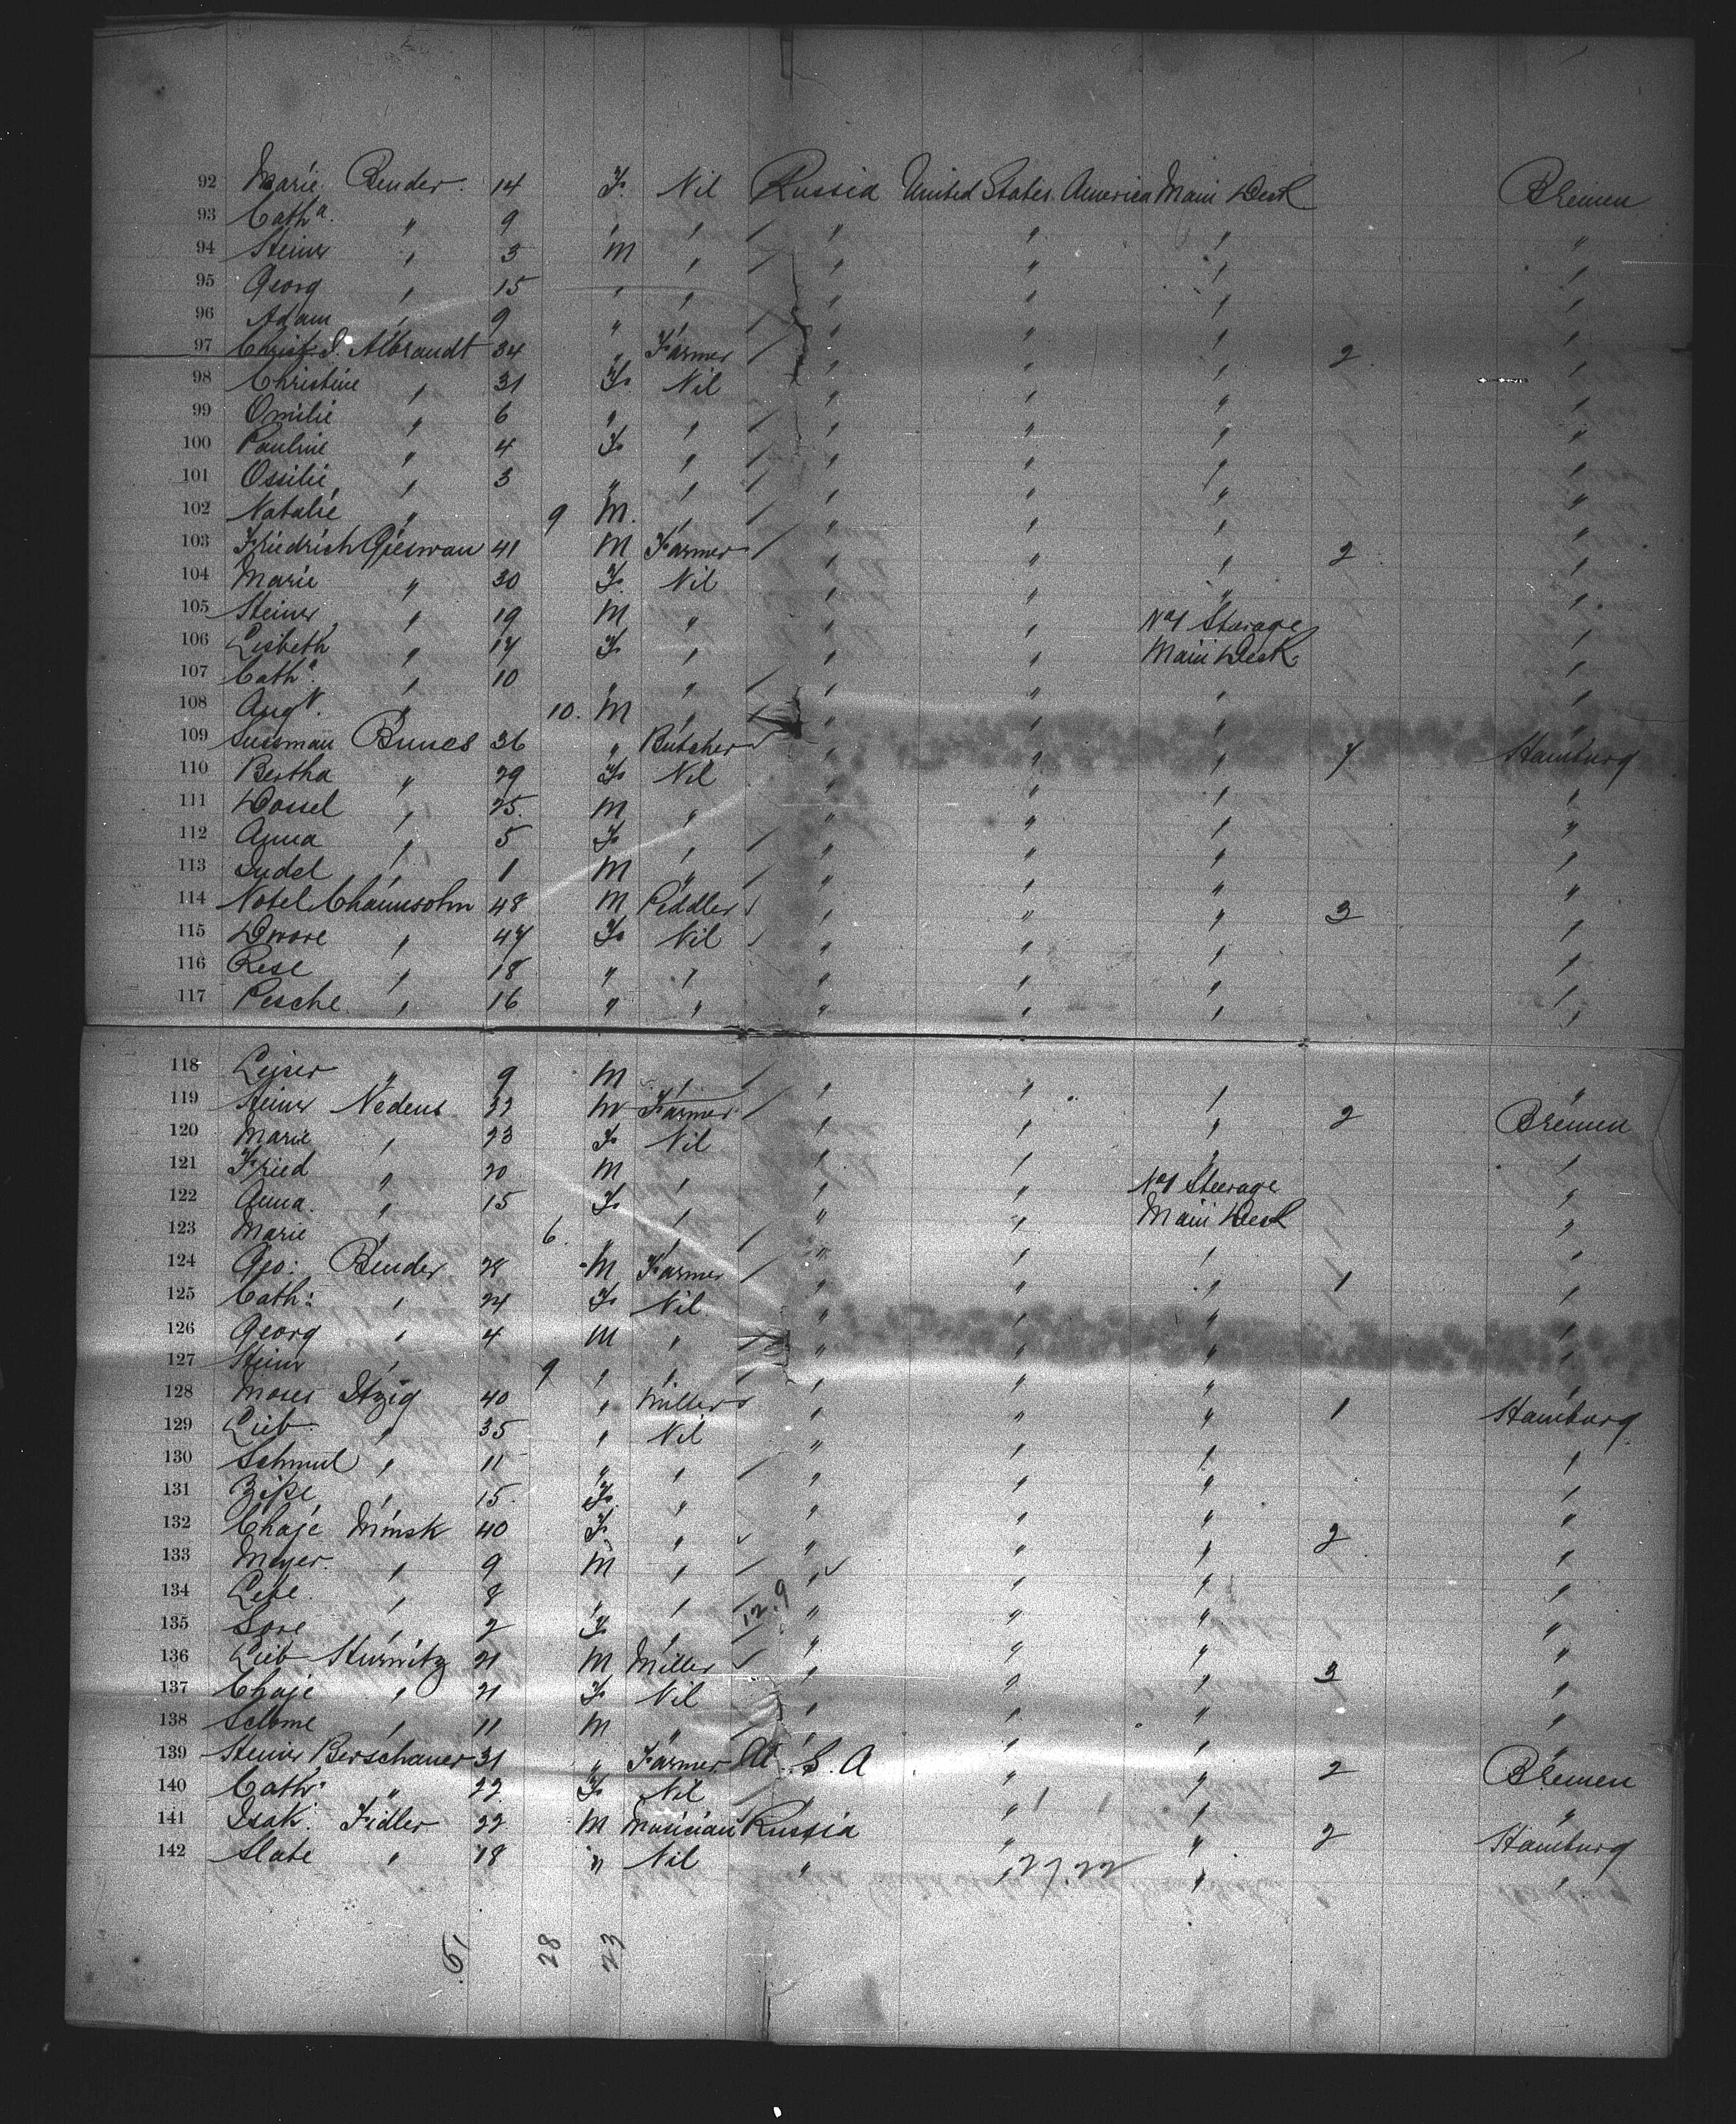 92 Marie Bender. 14 F. Nil Russia United States America Main Deck Bremen
93 Cath a. " 9 " " / " " " "
94 Heinr " 3 M " / " " " "
95 Georg " 15 " " " " " "
96 Adam " 9 " " / " " " "
97 Christ. Albrandt 34 " Farmer / " " " 2 "
98 Christine " 31 F. Nil " " " "
99 Omilie " 6 " " / " " " "
100 Pauline " 4 F. " / " " " "
101 Ossilie " 3 " " / " " " "
102 Natalie " 9 M. " / " " " "
103 Friedrich Gieswan 41 M Farmer / " " " 2 "
104 Marie " 30 F. Nil " " " "
105 Heinr " 19 M " " " No 1 Steerage "
106 Lisbeth " 17 F. " " " Main Deck "
107 Cath a. " 10 " " / " " " "
108 Aug t. " 10. M " / " " " "
109 Sussman Bunes 36 " Butcher " " " 4 Hamburg
110 Bertha " 29 F. Nil " " " "
111 Dossel " 25. M " " " " "
112 Anna " 5 F. " / " " " "
113 Judel " 1 M " / " " " "
114 Notel Chaimsohn 48 M Peddler " " " 3 "
115 Dwore " 47 F. Nil " " " "
116 Rese " 18 " " " " " "
117 Pesche " 16 " " " " " "
118 Leiser " 9 M " / " " " "
119 Heinr Nedens 32 M Farmer / " " " 2 Bremen
120 Marie " 23 F. Nil " " " "
121 Fried " 20 M " " " No 1 Steerage "
122 Anna. " 15 F. " " " Main Deck "
123 Marie " 6. " " / " " " "
124 Geo: Bender 28 M Farmer / " " " 1 "
125 Cath: " 24 F. Nil " " " "
126 Georg " 4 M " / " " " "
127 Heinr " 9 " " / " " " "
128 Moses Itzig 40 " Miller " " " 1 Hamburg
129 Lieb " 35 " Nil " " " "
130 Schmul " 11 " " / " " " "
131 Zipe " 15. F. " " " " "
132 Chaje Minsk 40 F. " " " " 2 "
133 Meyer. " 9 M " / " " " "
134 Leibe. " 8 " " / 12.9 " " " "
135 Sore " 2 F. " / " " " "
136 Lieb Hurwitz 21 M Miller " " " 3 "
137 Chaje " 21 F. Nil " " " "
138 Schme " 11 M " " " " "
139 Heinr Berschauer 31 " Farmer U. S. A " " 2 Bremen
140 Cath a. " 22 F. Nil " " " "
141 Isak. Fidler 22 M Musician Russia " " 2 Hamburg
142 Slate " 18 " Nil " " " "
51 28 23